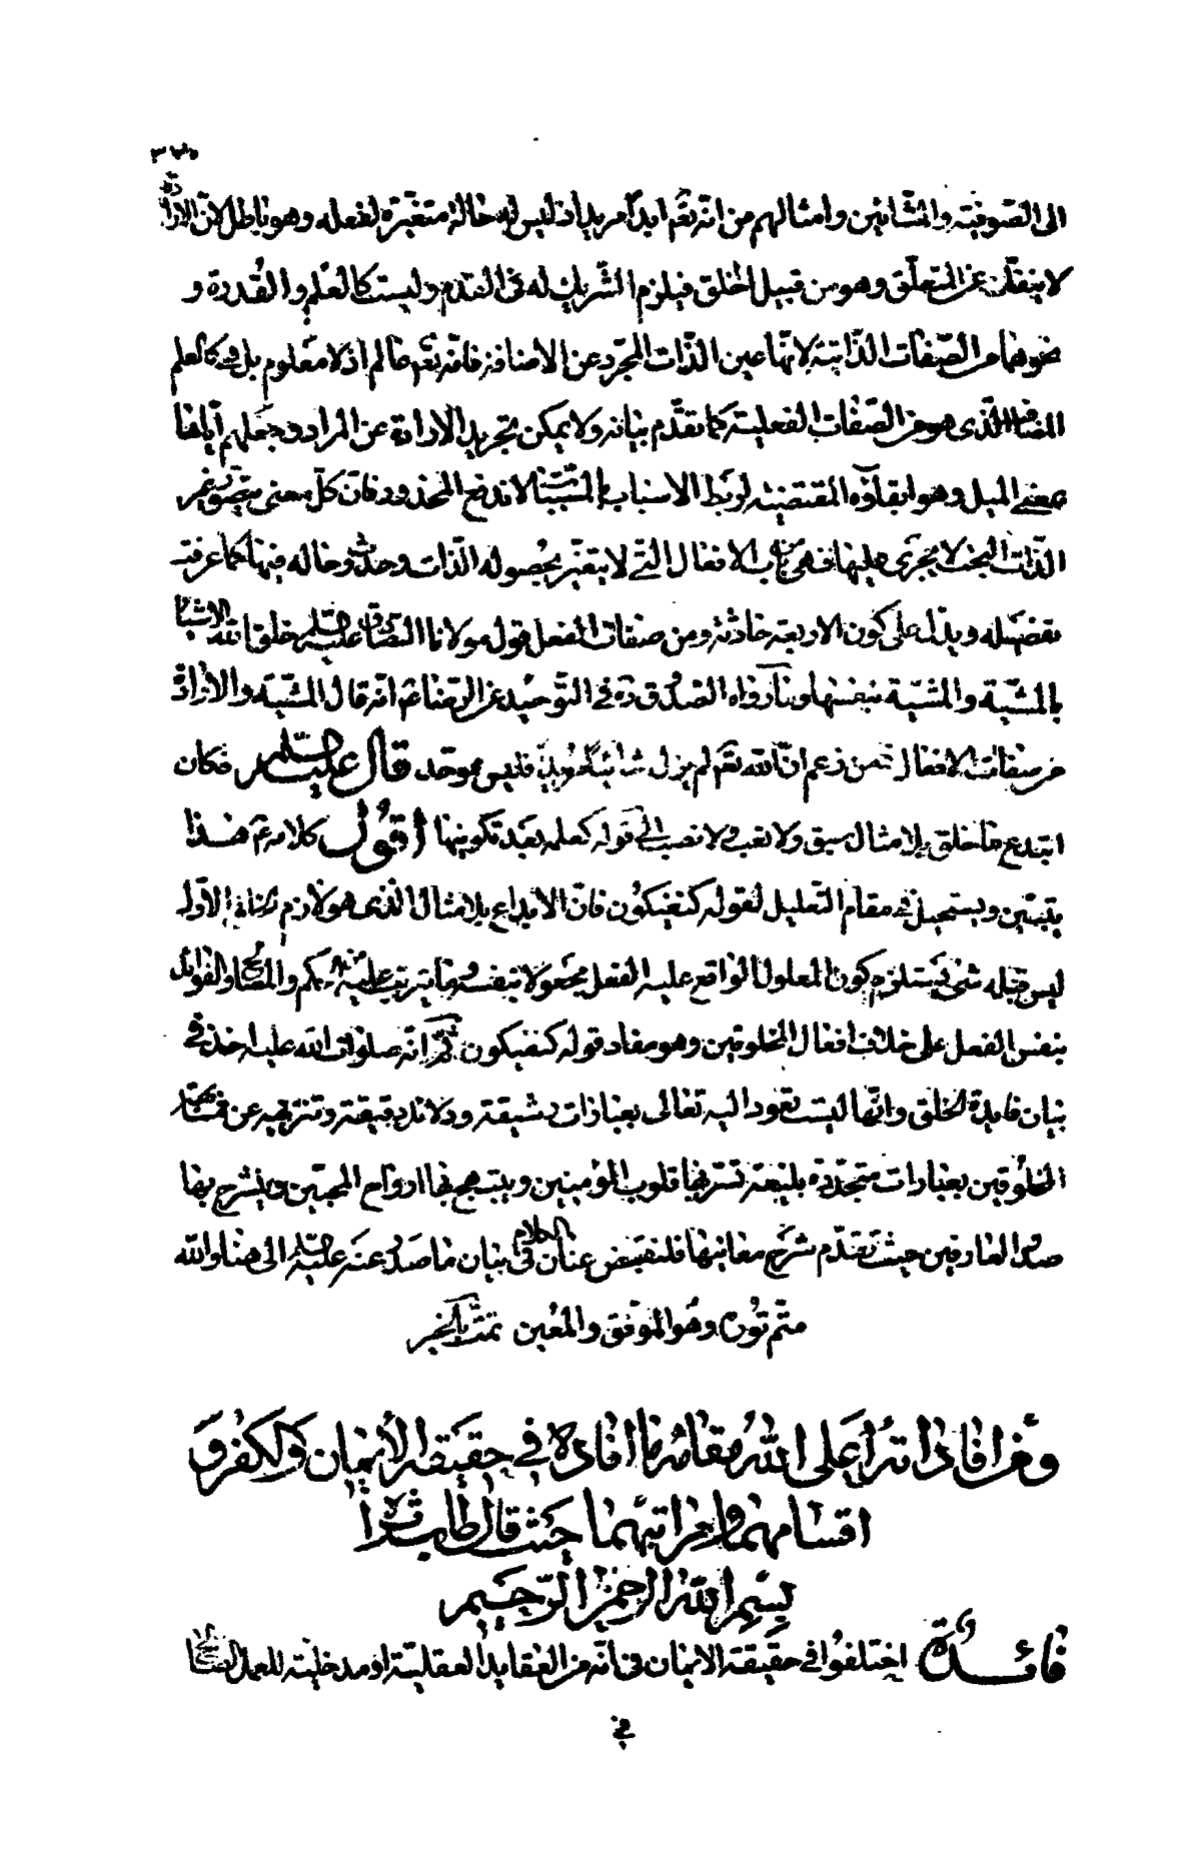 الى الصّوفيّه والمشّائين وامثالهم من انّه تعٓم ابداً مريداذ ليس له حالة متغيّرة لفعله وهو باطل لانّ الارادة
لا ينفكّ عن المتعلّق وهو من قبيل الخلق فيلزم الشّريك له فى القدم وليست كالعلم والقدرة و
نحوهما من الصّفات الذّاتيّة لانّها عين الذّات المجرّد عن الاضافة فانّه تعٓم عالم اذ لا معلوم بل هى كالعلم
المضاف الذى هو من الصّفات الفعليّة كما تقدّم بيانه ولا يمكن تجريد الارادة عن المراد وجعلهم ايّاها
بمعنى الميل وهو ابقاؤه المقتضية لربط الاسباب بالمسبّبات لا يدفع المحذور فان كلّ معنى يتصوّر غير
الذّات البحت لا يجرى عليها فهى من باب الافعال التى لا يتغيّر بحصوله الذّات وحدث وحاله فيها كما عرفت
تفصيله ويدلّ على كون الاربعة حادثة ومن صفات الفعل قول مولانا الصّادق عليه السّلم خلق الله الاشياء
بالمشيّة والمشيّة بنفسها وما رواه الصّدوق ره فى التّوحيد عن الرّضا عٓ انّه قال المشيّة والارادة
من صفات الافعال فمن زعم انّ الله تعٓم لم يزل شائياً مريداً فليس بموحّد قال عليه السّلم فكان
ابتدع ما خلق بلا مثال سبق ولا تعب ولا نصب الى قوله كعلمه بعد تكوينها اقول كلامه عٓ هذا
يتبيّن ويستحيل فى مقام التّعليل لقوله كن فيكون فانّ الابداع بلا مثال الذى هو لازم الاوّل
ليس قبله شئ يستلزم كون المعلول الواقع عليه الفعل مجعولا بنفسه وما يترتب عليه من الحكم والمصالح والفوائد
بنفس الفعل على خلاف افعال المخلوقين وهو مفاد قوله كن فيكون ثمّ انّه صلوات الله عليه اخذ فى
بيان فايدة الخلق وانّها ليست تعود اليه تعالى بعبارات رشيقة ودلائل دقيقة وتنزيهه عن مشابهة
المخلوقين بعبارات متجدّدة بليغة تستر بها قلوب المؤمنين ويبتهج بها ارواح المحبّين وينشرح بها
صدور العارفين حيث تقدّم شرح معانيها فلنقبض عنان الكلام فى بيان ما صدر عنه عليه السّلم الى هنا والله
متمّ نوره وهو الموفّق والمعين تمت بالخير
ومن افاداته اعلى الله مقامه ما افاده في حقيقة الأيمان والكفر و
اقسامهما ومراتبهما حيث قال طاب ثراه
بسم الله الرحمن الرّحيم
فائدة اختلفوا في حقيقة الايمان فى انّه من العقايد العقلية او مدخلية للعمل الصّالح
في